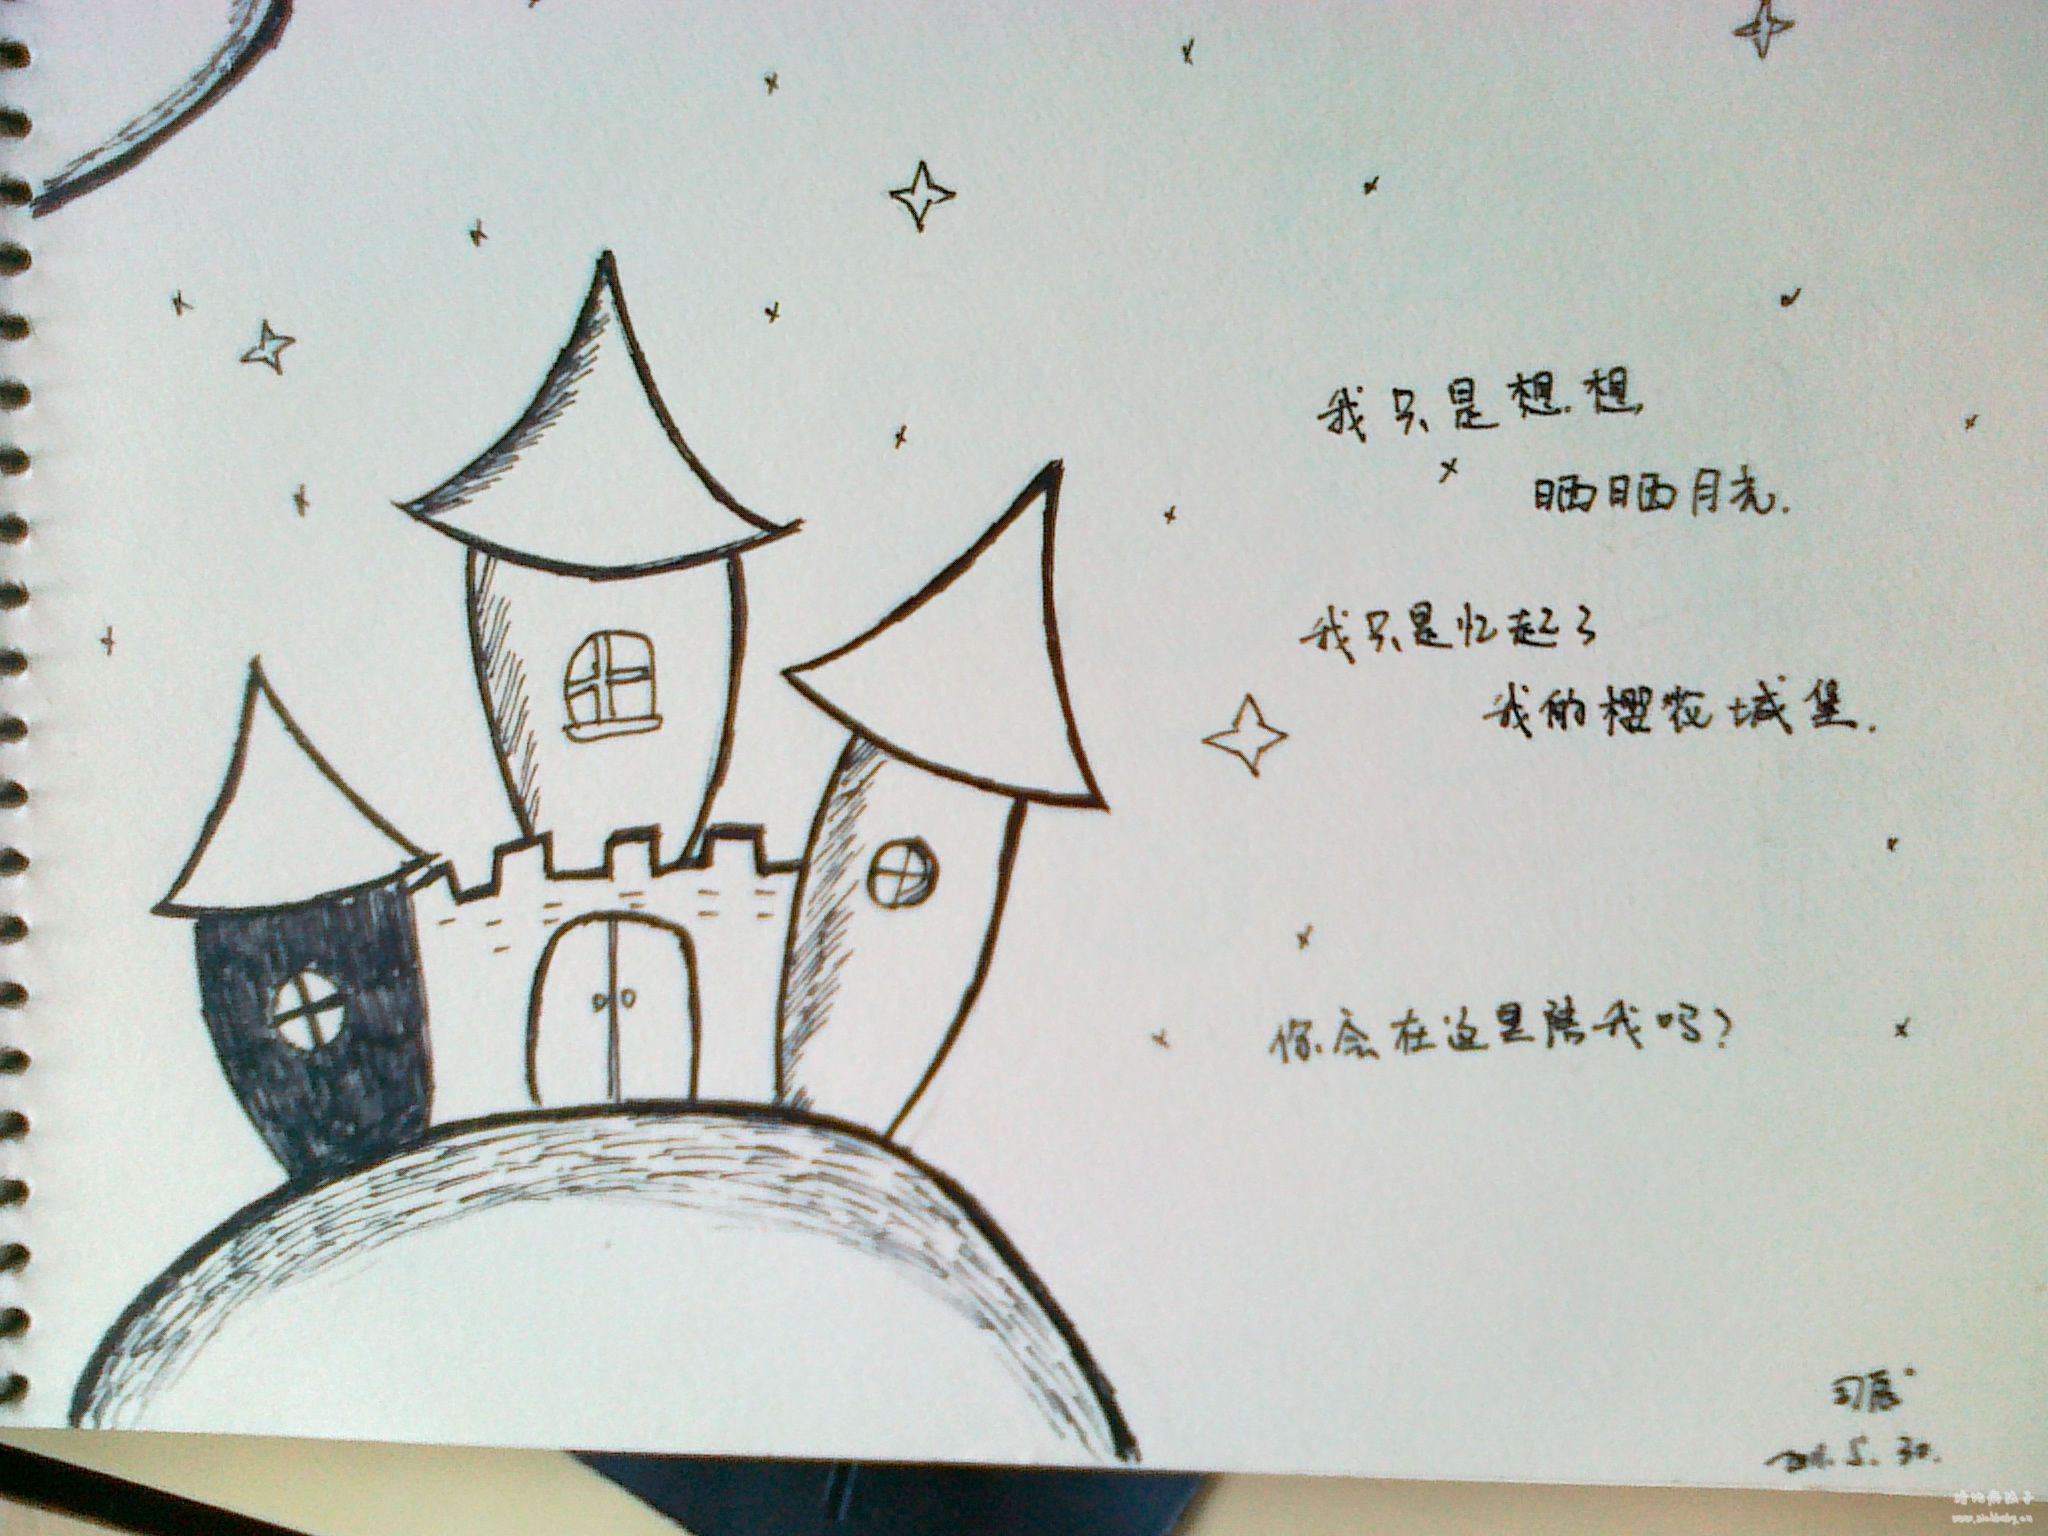 我只是想.想,
晒晒月光.
我只是忆起了
我的樱花城堡.
你会在这里陪我吗?
5.30.